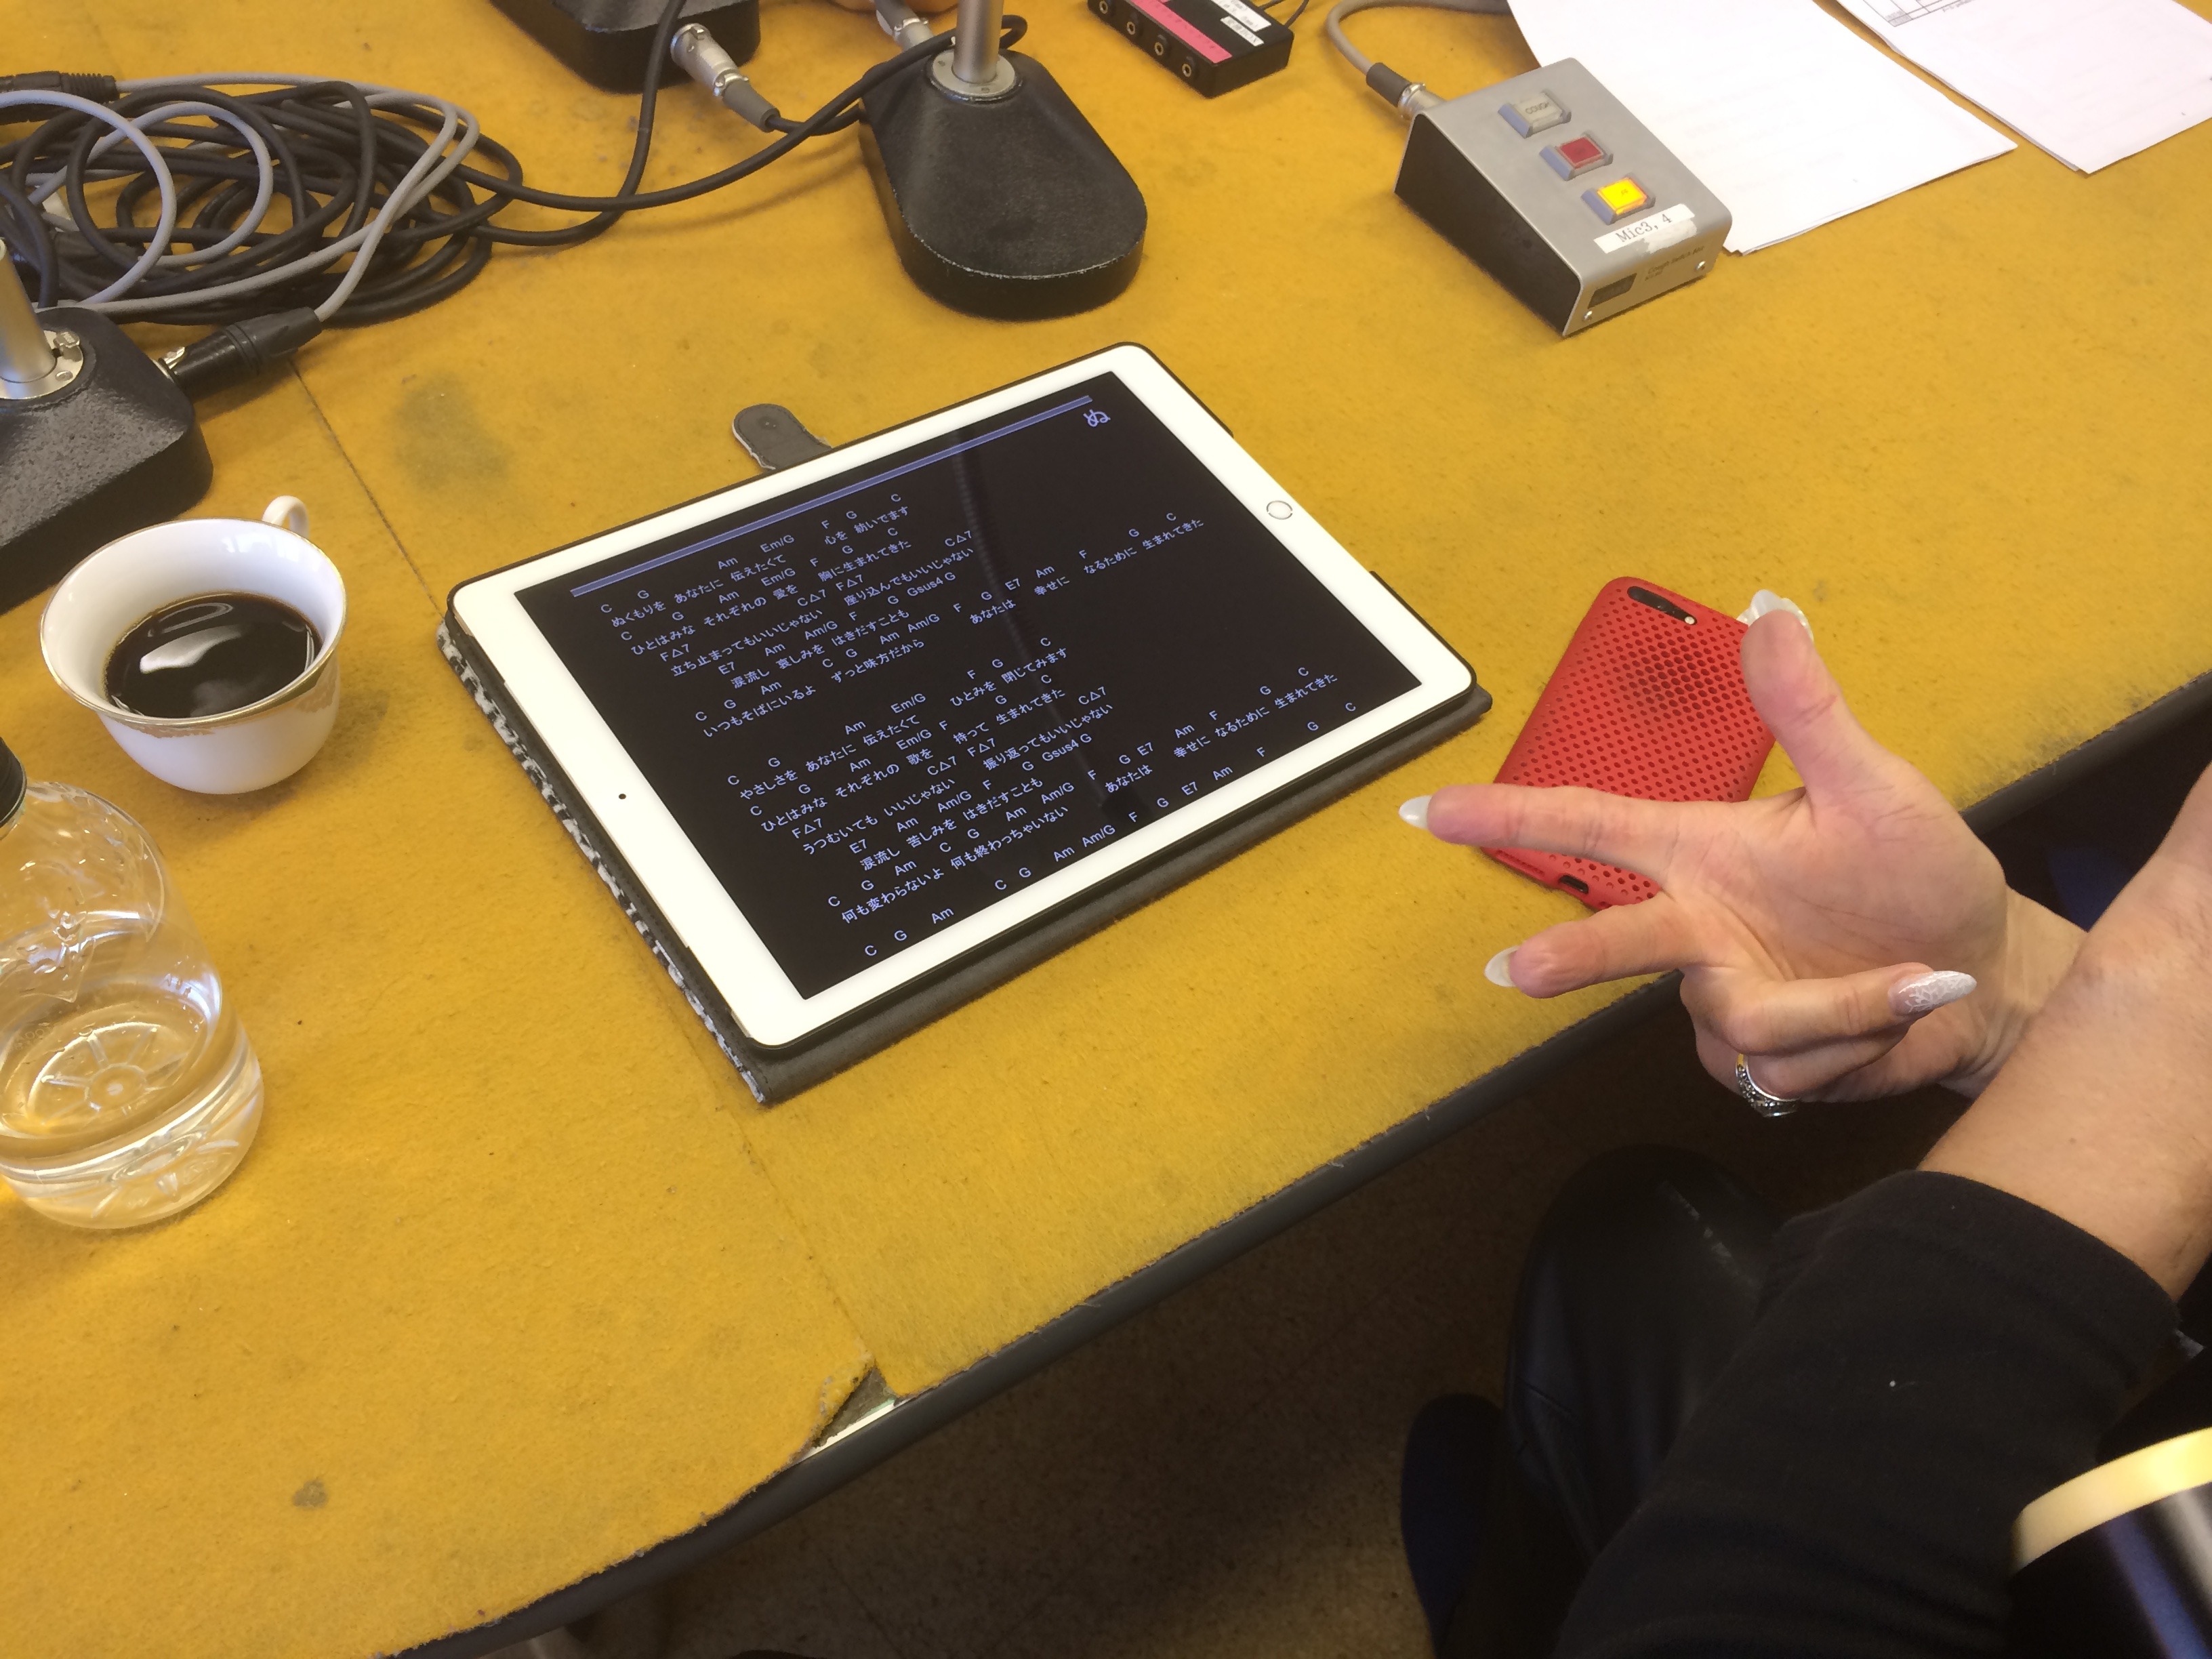 COUGH
Mic3, 4
ぬ
F G C
Am Em/G 心を 紡いでます
C G
ぬくもりを あなたに 伝えたくて
C G Am Em/G F G C
ひとはみな それぞれの 愛を 胸に生まれてきた
F△7 C△7 F△7 C△7
立ち止まってもいいじゃない 座り込んでもいいじゃない
E7 Am Am/G F G Gsus4 G
涙流し 哀しみを はきだすことも
C G Am C G Am Am/G F G E7 Am F G C
いつもそばにいるよ ずっと味方だから あなたは 幸せに なるために 生まれてきた
C G Am Em/G F G C
やさしさを あなたに 伝えたくて ひとみを 閉じてみます
C G Am Em/G F G C
ひとはみな それぞれの 歌を 持って 生まれてきた
F△7 C△7 F△7 C△7
うつむいても いいじゃない 振り返ってもいいじゃない
E7 Am Am/G F G Gsus4 G
涙流し 苦しみを はきだすことも
C G Am C G Am Am/G F G E7 Am F G C
何も変わらないよ 何も終わっちゃいない あなたは 幸せに なるために 生まれてきた
C G Am C G Am Am/G F G E7 Am F G C